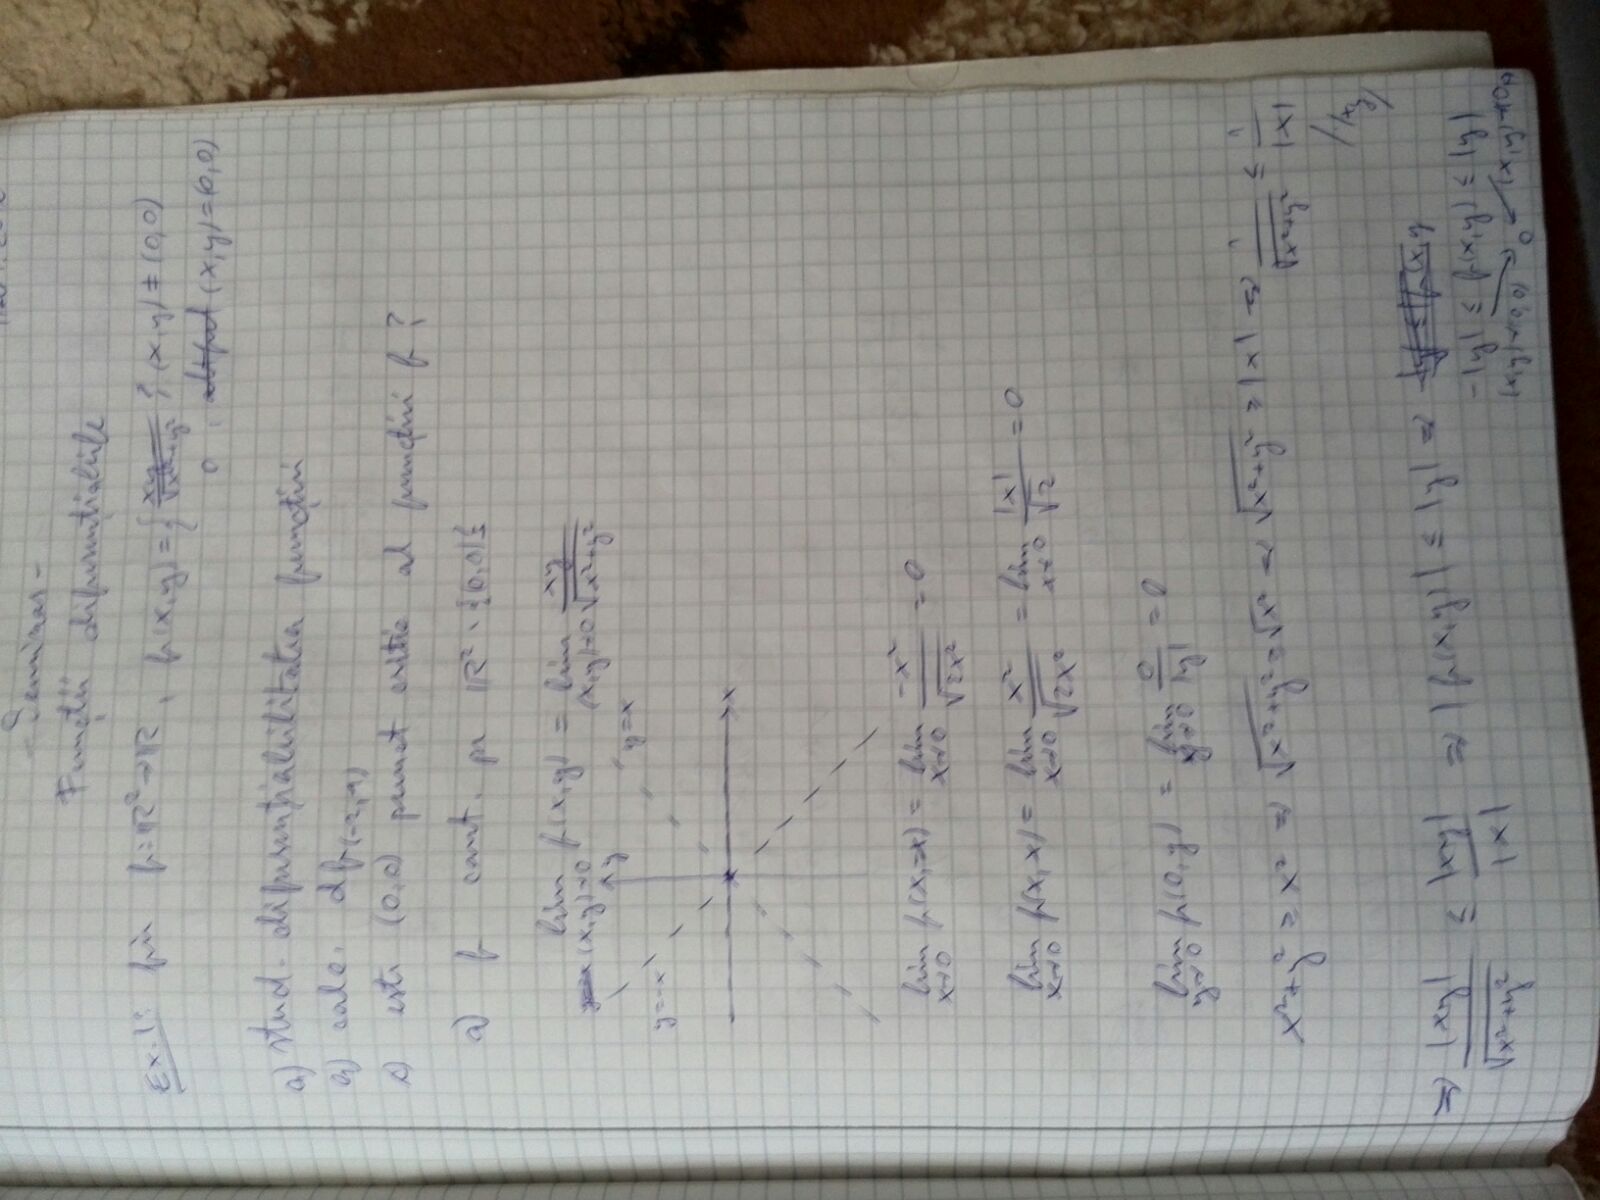 - Seminar -
Funcții diferențiabile
Ex. 1: fie f: ℝ² → ℝ, f(x,y) = { xy / √(x²+y²) ; (x,y) ≠ (0,0)
0, (x,y) = (0,0)
a) stud. diferențiabilitatea funcției
b) calc. df(-2,1)
c) este (0,0) punct critic al funcției f?
a) f cont. pe ℝ² \ {(0,0)}
lim (x,y)→0 f(x,y) = lim (x,y)→0 xy / √(x²+y²)
y
y=-x
y=x
x
lim x→0 f(x,-x) = lim x→0 -x² / √2x² = 0
lim x→0 f(x,x) = lim x→0 x² / √2x² = lim x→0 |x| / √2 = 0
lim y→0 f(0,y) = lim y→0 0 / |y| = 0
x²+y² ≥ x² ⇒ √(x²+y²) ≥ √x² ⇒ √(x²+y²) ≥ |x| ⇒ 1 / √(x²+y²) ≤ 1 / |x| / |xy|
⇒ |xy| / √(x²+y²) ≤ |xy| / |x| ⇒ |f(x,y)| ≤ |y| ⇒
-|y| ≤ f(x,y) ≤ |y|
(x,y)→(0,0) 0 (x,y)→(0,0)